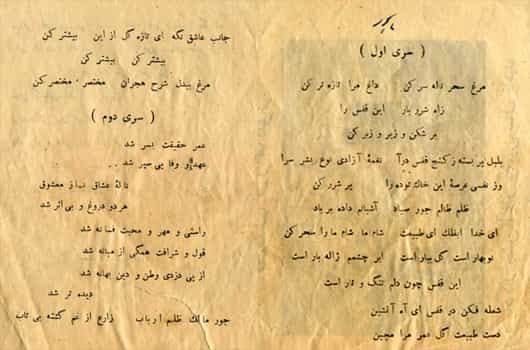 ماهور
( سری اول )
مرغ سحر ناله سر کن داغ مرا تازه تر کن
زاه شرر بار این قفس را
بر شکن و زیر و زبر کن
بلبل پر بسته ز کنج قفس درآ نغمهٔ آزادی نوع بشر سرا
وز نفسی عرصهٔ این خاک توده را پر شرر کن
ظلم ظالم جور صیاد آشیانم داده بر باد
ای خدا ای فلک ای طبیعت شام ما شام ما را سحر کن
نوبهار است گل ببار است ابر چشمم ژاله بار است
این قفس چون دلم تنگ و تار است
شعله فکن در قفس ای آه آتشین
دست طبیعت گل عمر مرا مچین
جانب عاشق نگه ای تازه گل از این بیشتر کن
بیشتر کن بیشتر کن
مرغ بیدل شرح هجران مختصر مختصر کن
( سری دوم )
عمر حقیقت بسر شد
عهد و وفا بی سپر شد
نالهٔ عشاق ناز معشوق
هر دو دروغ و بی اثر شد
راستی و مهر و محبت فسانه شد
قول و شرافت همگی از میانه شد
از پی دزدی وطن و دین بهانه شد
دیده تر شد
جور مالک ظلم ارباب زارع از غم گشته بی تاب